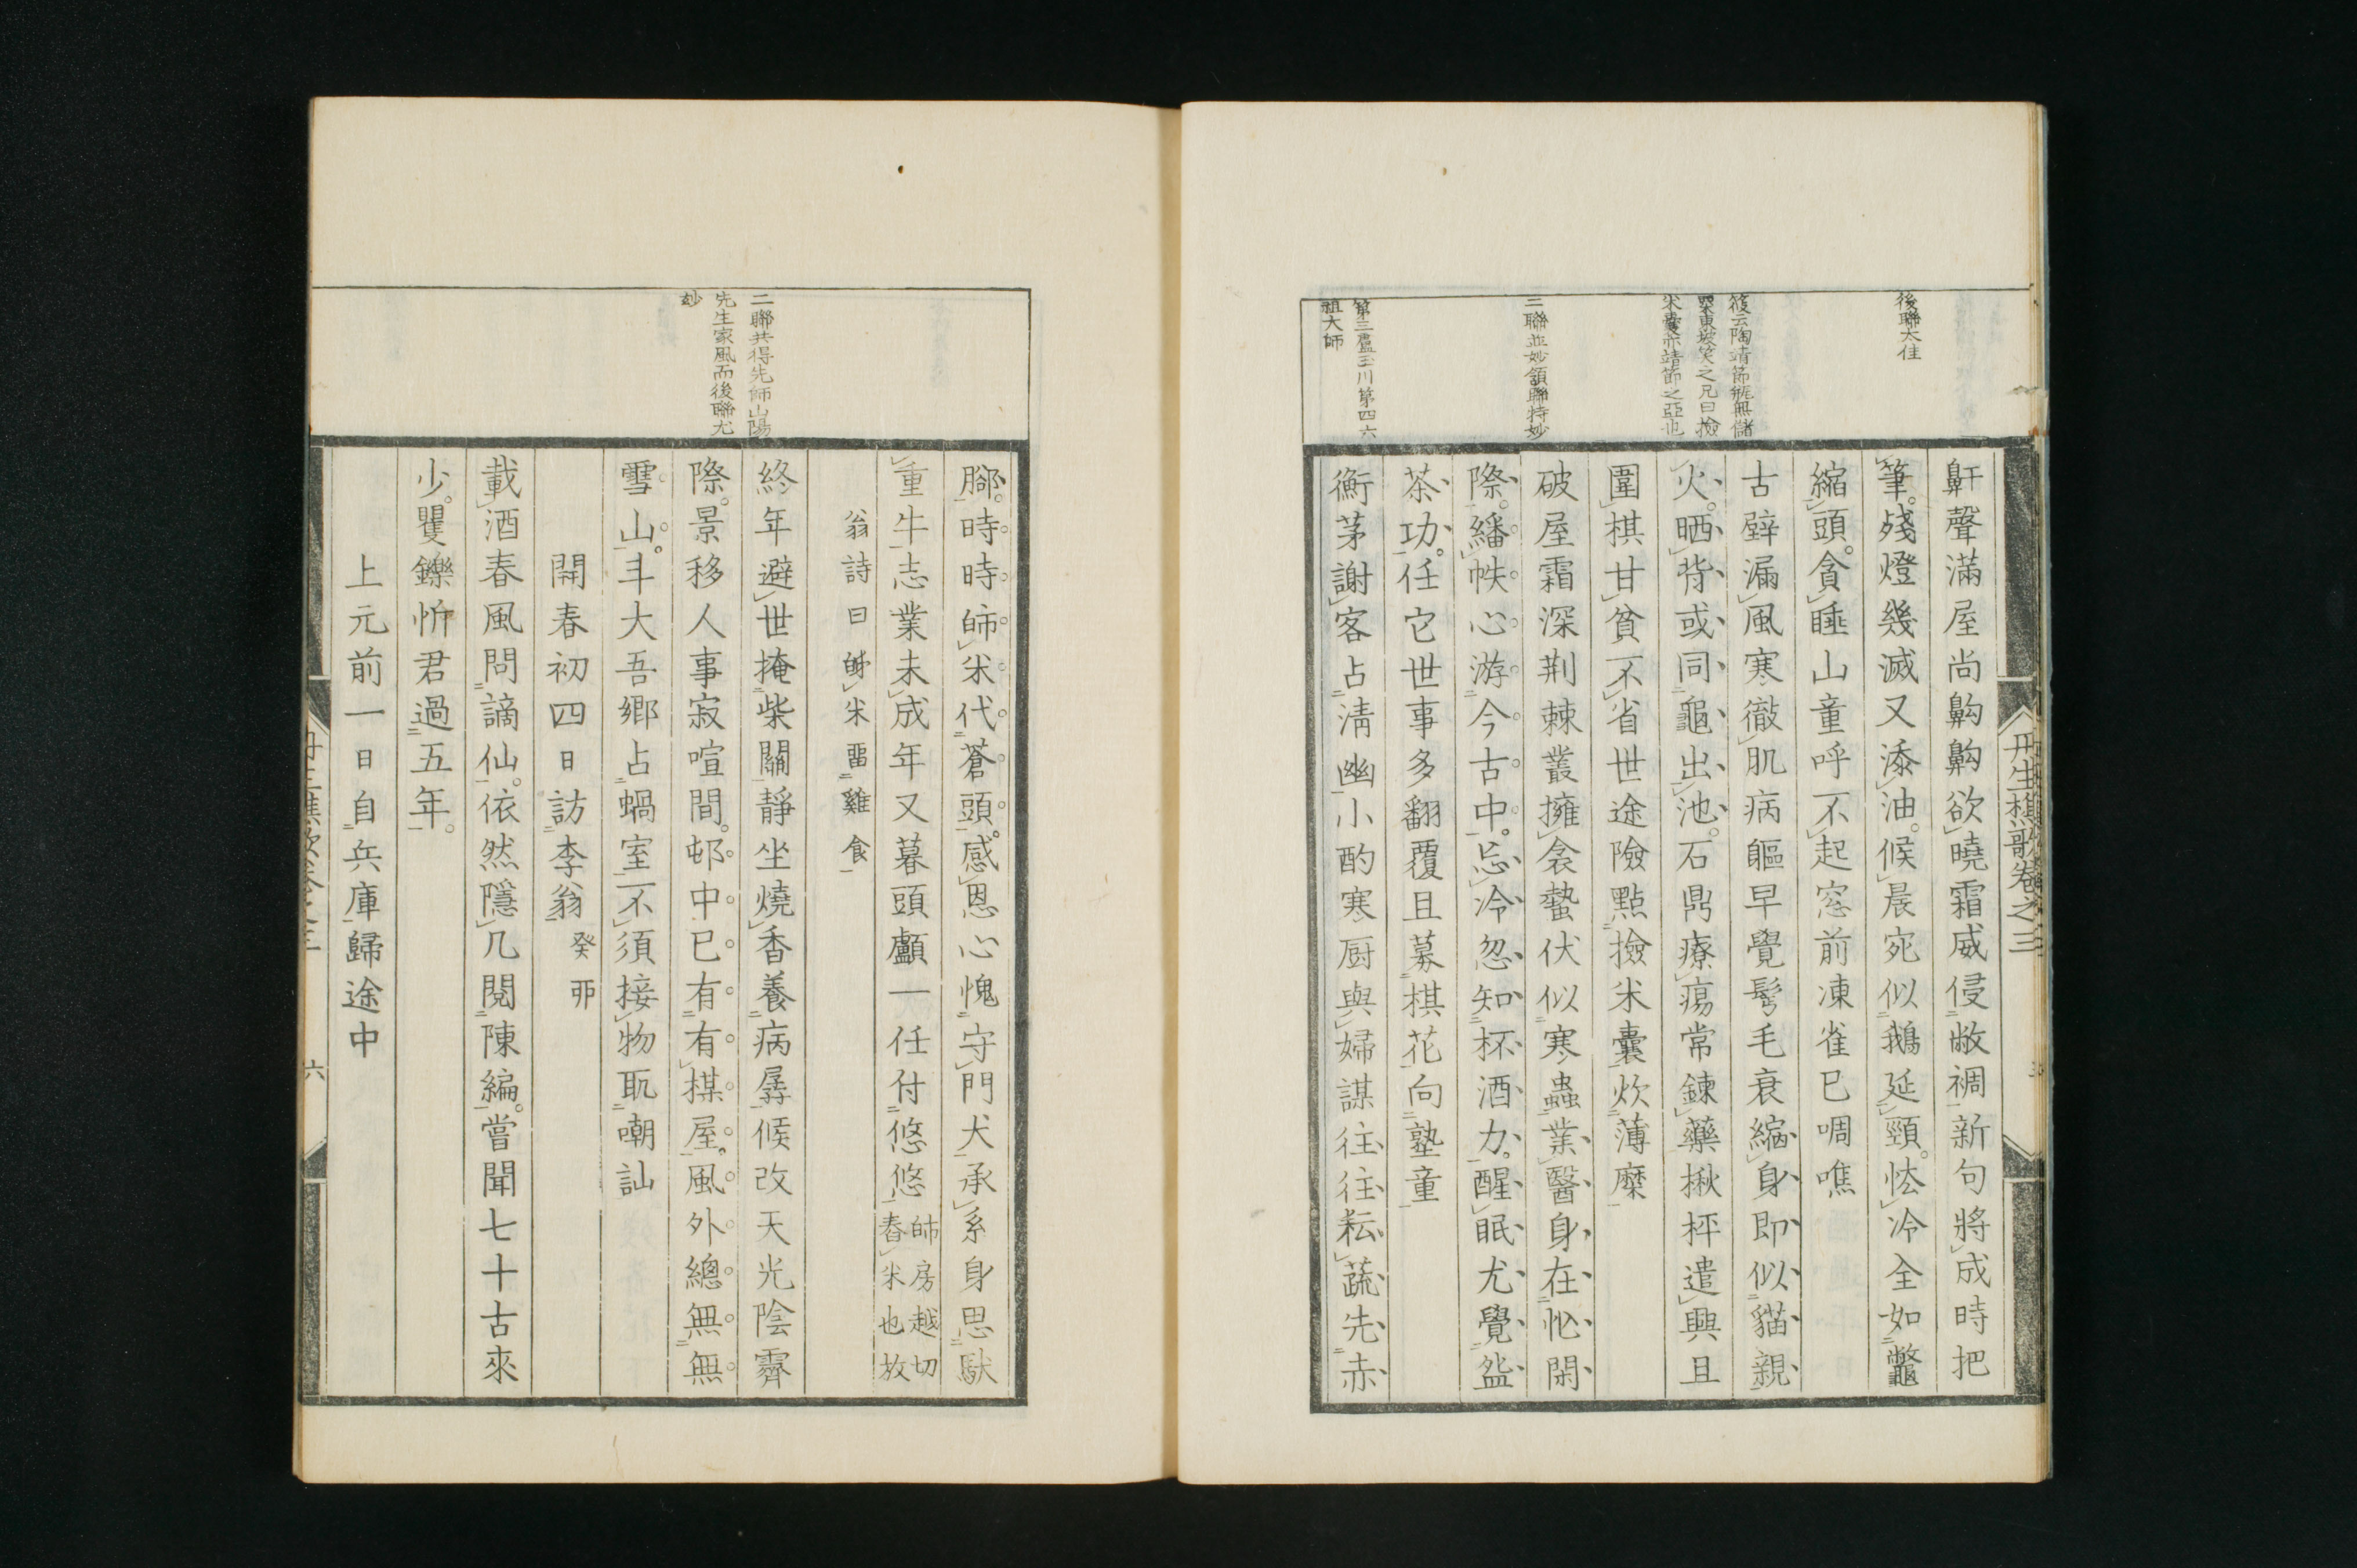 後聯太佳
筱云陶靖節甁無儲
粟東坡笑之兄曰撿
米囊亦靖節之亞也
二聯並妙頷聯特妙
第三盧玉川第四六
祖大師
丹生樵歌卷之三
鼾聲滿屋尚齁齁欲曉霜威侵敝裯新句將成時把
筆殘燈幾滅又添油候晨宛似鵝延頸怯冷全如鼈
縮頭貪睡山童呼不起窓前凍雀已啁噍
古壁漏風寒徹肌病軀早覺鬂毛衰縮身卽似貓親
火晒背或同龜出池石鼎療痬常鍊藥楸枰遣興且
圍棋甘貧不省世途險點撿米囊炊薄糜
破屋霜深荆棘叢擁衾蟄伏似寒蟲業醫身在怭閑
際繙帙心游今古中忘冷忽知杯酒力醒眠尤覺盌
茶功任它世事多翻覆且募棋花向塾童
衡茅謝客占淸幽小酌寒厨與婦謀往往耘蔬先赤
二聯共得先師山陽
先生家風而後聯尤
妙
脚時時䏢米代蒼頭感恩心愧守門犬承系身思馱
重牛志業未成年又暮頭顱一任付悠悠 䏢房越切
舂米也放
翁詩曰䏢米畱雞食
終年避世掩柴關靜坐燒香養病孱候改天光陰霽
際景移人事寂喧間邨中已有有楳屋風外總無無
雪山斗大吾鄕占蝸室不須接物耴嘲訕
開春初四日訪李翁 癸丣
載酒春風問謫仙依然隱几閱陳編嘗聞七十古來
少矍鑠忻君過五年
上元前一日自兵庫歸途中
六